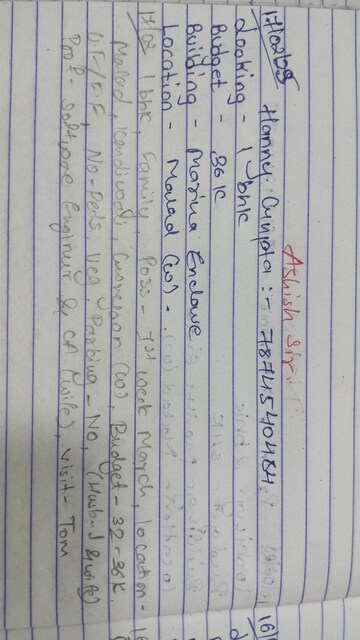 Ashish Sir
17/02/25 Hanny Gupta :- 7874540484
Looking - 1 bhk
Budget - 36 K
Building - Marina Enclave
Location - Malad (W) -
17/02 1 bhk, Family, Poss - 1st week March, location -
Malad, Kandivali, Goregaon (W), Budget - 32-36K.
U.F/F.F, No-Pets, Veg, Parking - No, (Husband & wife)
Prof - Software Engineer & CA (wife), Visit - Tom